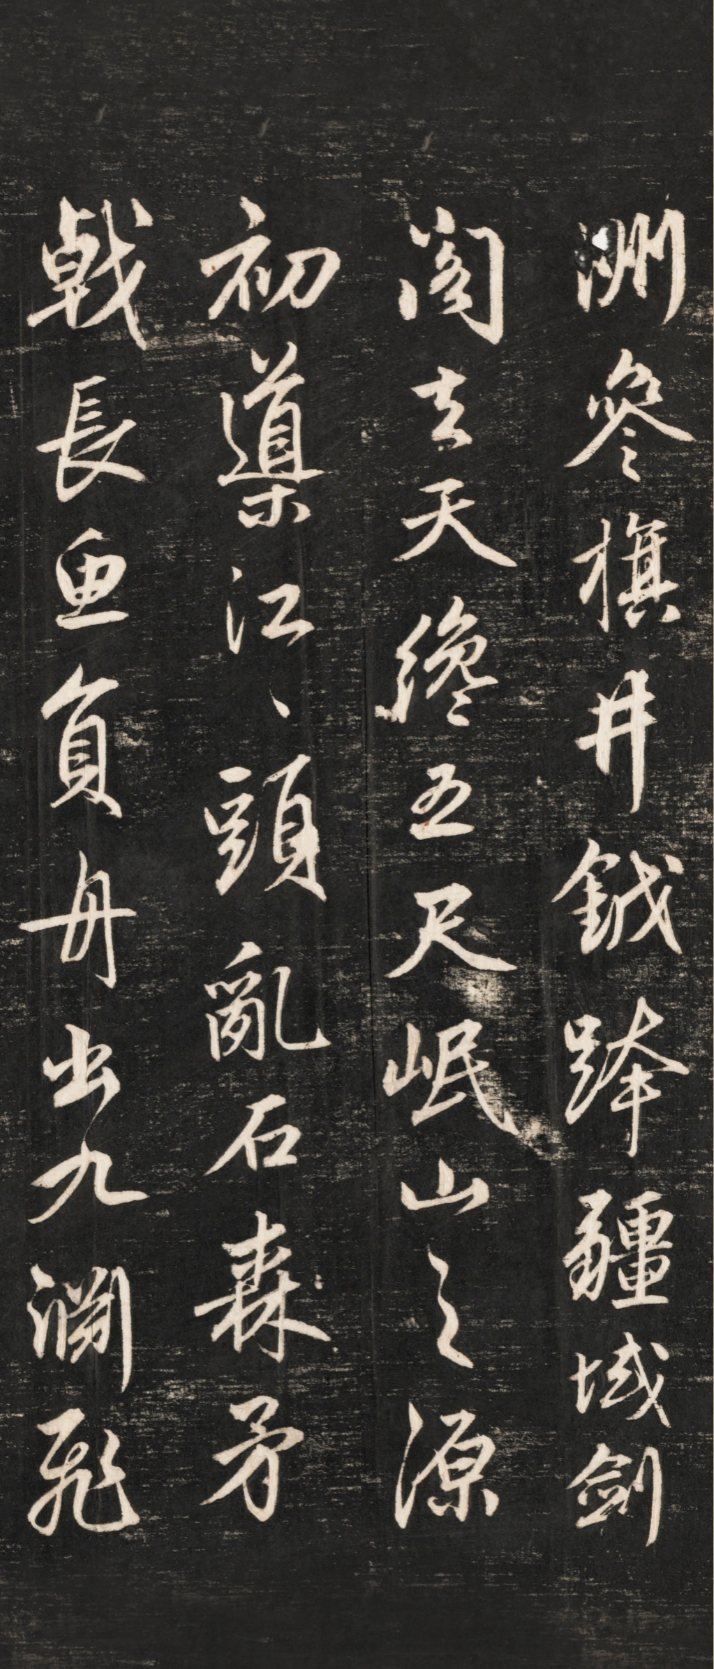 洲參旗井鉞疆域劍
閣去天纔五尺岷山之源
初導江、頭亂石森矛
戟長魚負舟出九淵飛